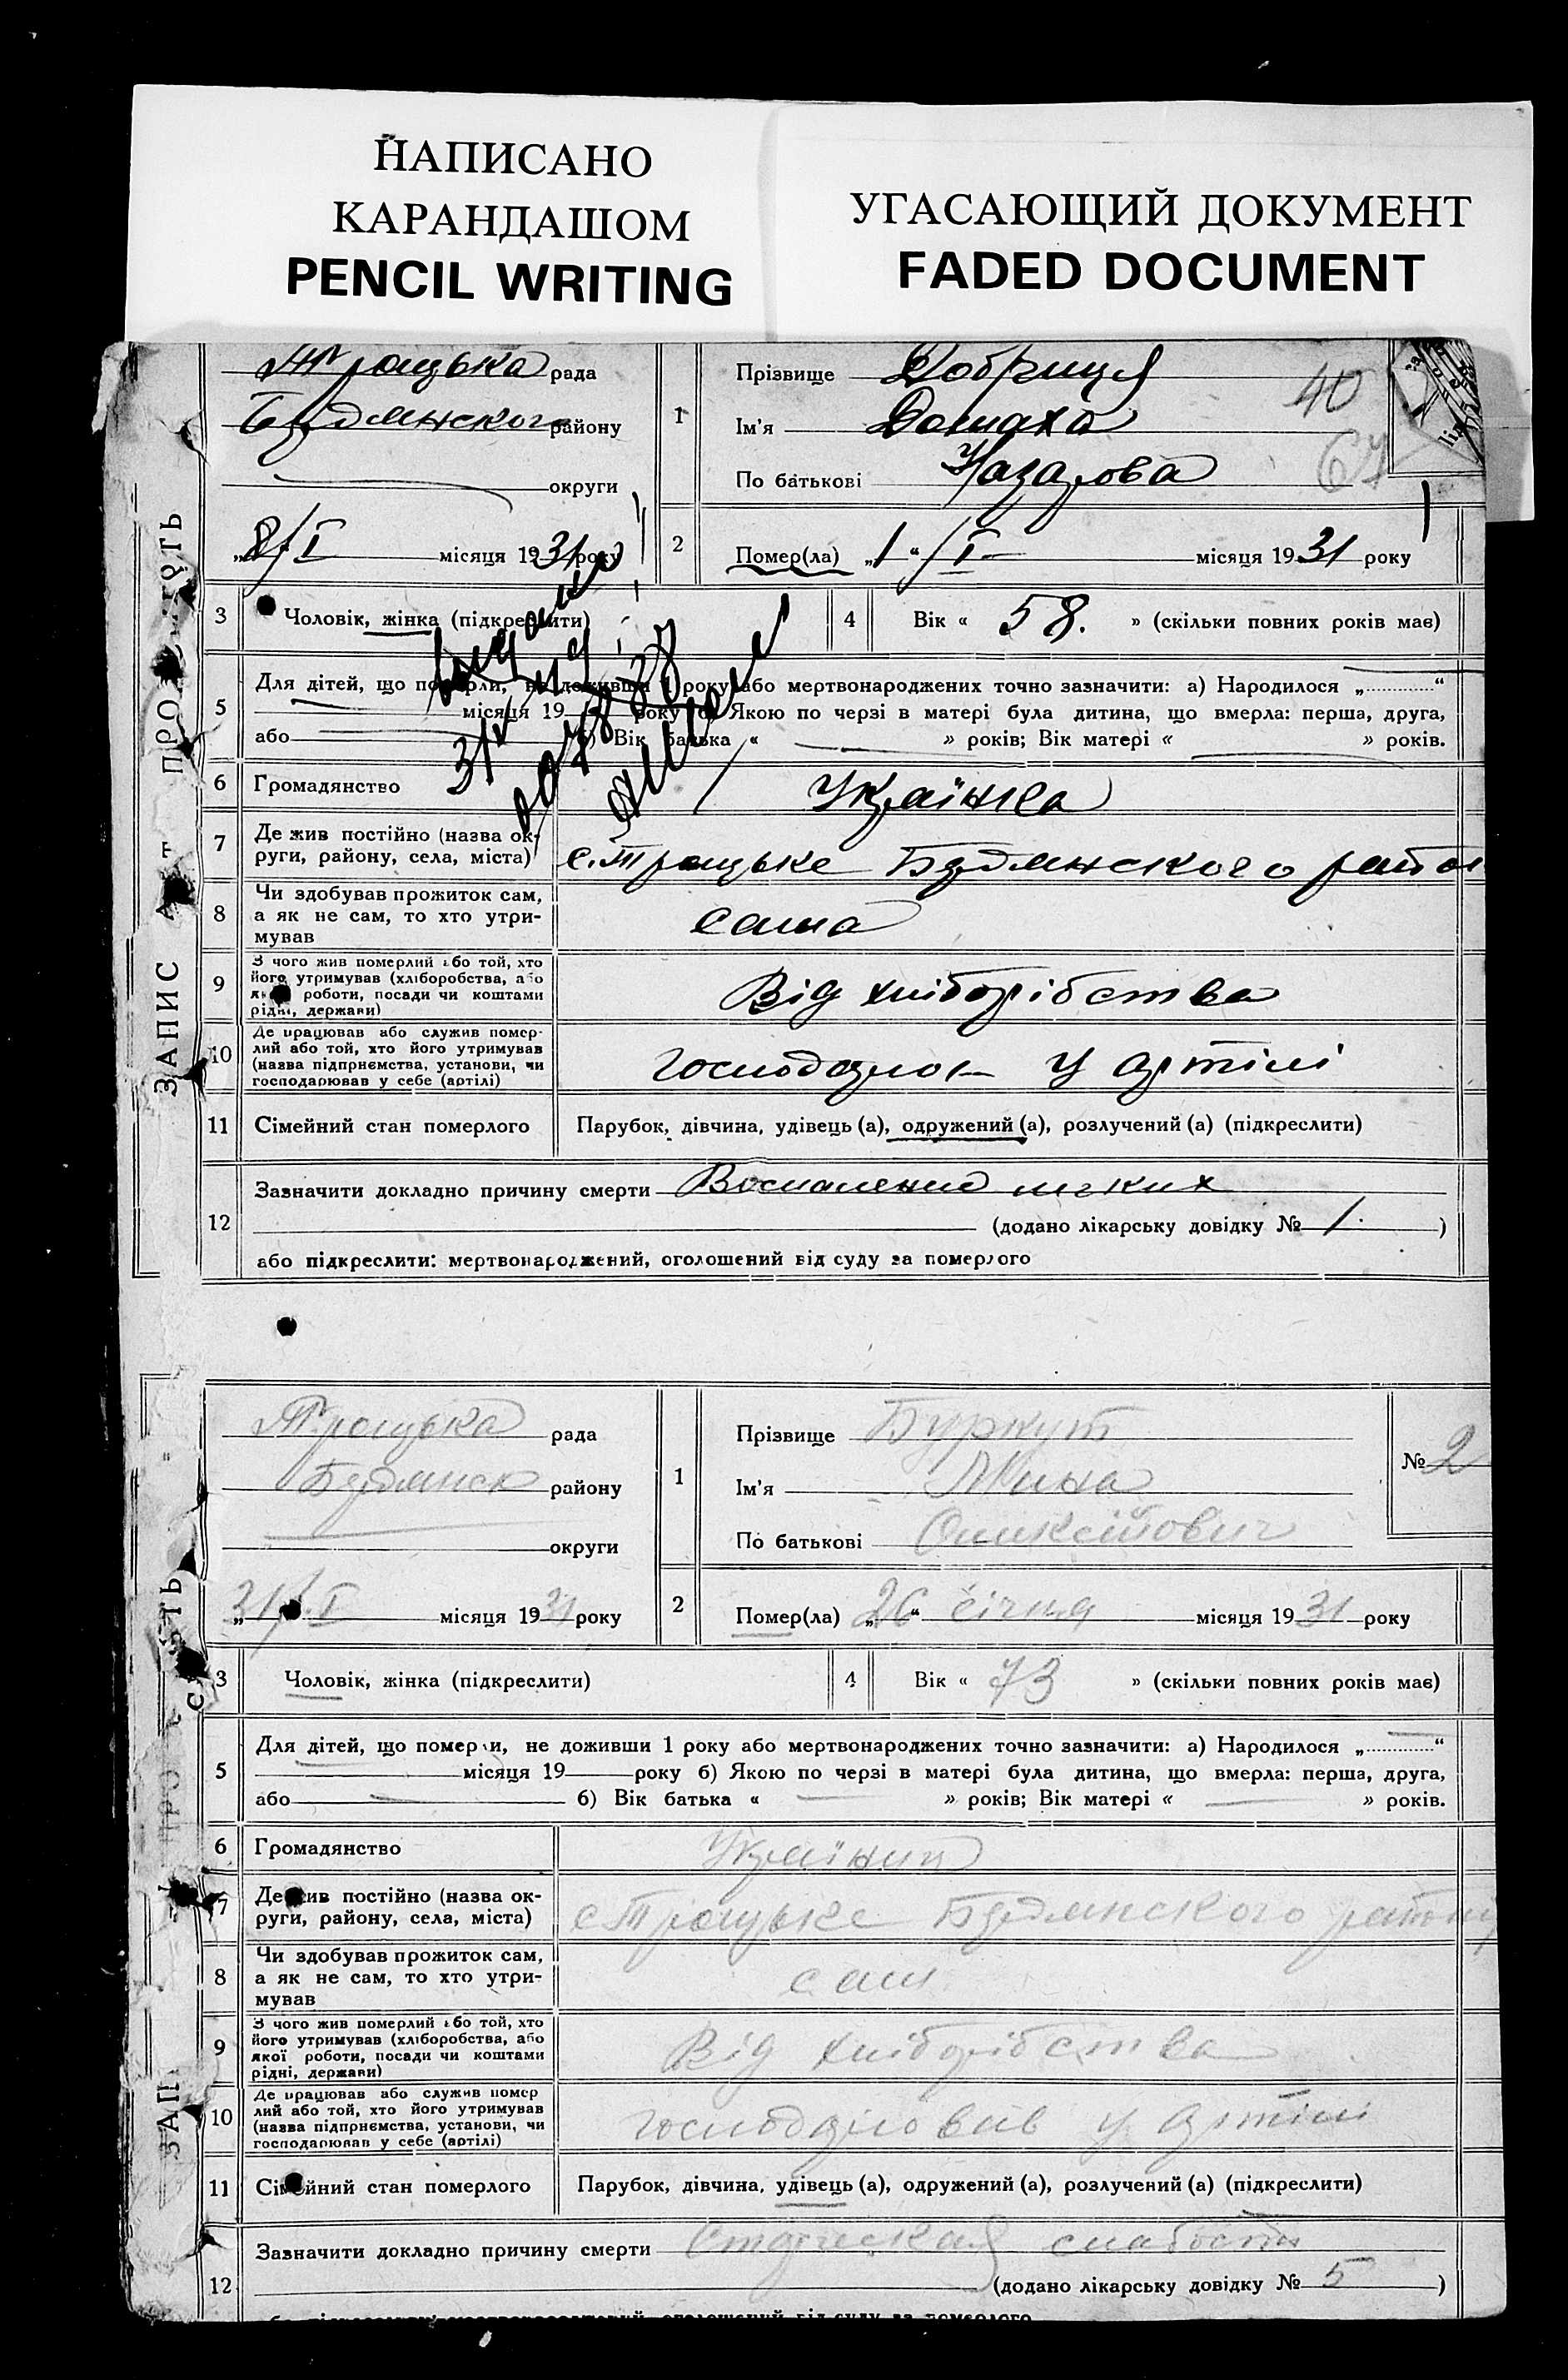 НАПИСАНО
КАРАНДАШОМ
PENCIL WRITING
УГАСАЮЩИЙ ДОКУМЕНТ
FADED DOCUMENT
ЗАПИС ПРО
Троцька рада
Будянського району
округи
„8/I місяця 1931 року
1
Прізвище Добриця
Ім'я Домаха
По батькові Назарова
40
67
2 Помер(ла) „1“ /I місяця 1931 року
3 Чоловік, жінка (підкреслити)
4 Вік « 58. » (скільки повних років має)
5 Для дітей, що померли, не доживши 1 року або мертвонароджених точно зазначити: а) Народилося „ “
місяця 19 року б) Якою по черзі в матері була дитина, що вмерла: перша, друга,
або б) Вік батька « » років; Вік матері « » років.
6 Громадянство Українка
7 Де жив постійно (назва ок-
руги, району, села, міста) с. Троцьке Будянского
8 Чи здобував прожиток сам,
а як не сам, то хто утри-
мував
сама
9 З чого жив померлий або той, хто
його утримував (хліборобства, або
роботи, посади чи коштами
рідні, держави)
Від хліборібства
10 Де працював або служив помер-
лий або той, хто його утримував
(назва підприємства, установи, чи
господарював у себе (артілі)
у артілі
11 Сімейний стан померлого Парубок, дівчина, удівець (а), одружений (а), розлучений (а) (підкреслити)
12 Зазначити докладно причину смерти Воспаление легких
(додано лікарську довідку № 1. )
або підкреслити: мертвонароджений, оголошений від суду за померлого
Троцька рада
Будянск району
округи
„31/I місяця 1931 року
1
Прізвище Буркут
Ім'я Мина
По батькові Олексійович
№ 2
2 Помер(ла) „26“ січня місяця 1931 року
3 Чоловік, жінка (підкреслити)
4 Вік « 73 » (скільки повних років має)
5 Для дітей, що померли, не доживши 1 року або мертвонароджених точно зазначити: а) Народилося „ “
місяця 19 року б) Якою по черзі в матері була дитина, що вмерла: перша, друга,
або б) Вік батька « » років; Вік матері « » років.
6 Громадянство Українец
7 Де жив постійно (назва ок-
руги, району, села, міста) с Троцьке Будянского району
8 Чи здобував прожиток сам,
а як не сам, то хто утри-
мував
сам
9 З чого жив померлий або той, хто
його утримував (хліборобства, або
якої роботи, посади чи коштами
рідні, держави)
Від хліборібства
10 Де працював або служив помер
лий або той, хто його утримував
(назва підприємства, установи, чи
господарював у себе (артілі)
господарював у артілі
11 Сімейний стан померлого Парубок, дівчина, удівець (а), одружений (а), розлучений (а) (підкреслити)
12 Зазначити докладно причину смерти Старческая слабость
(додано лікарську довідку № 5 )